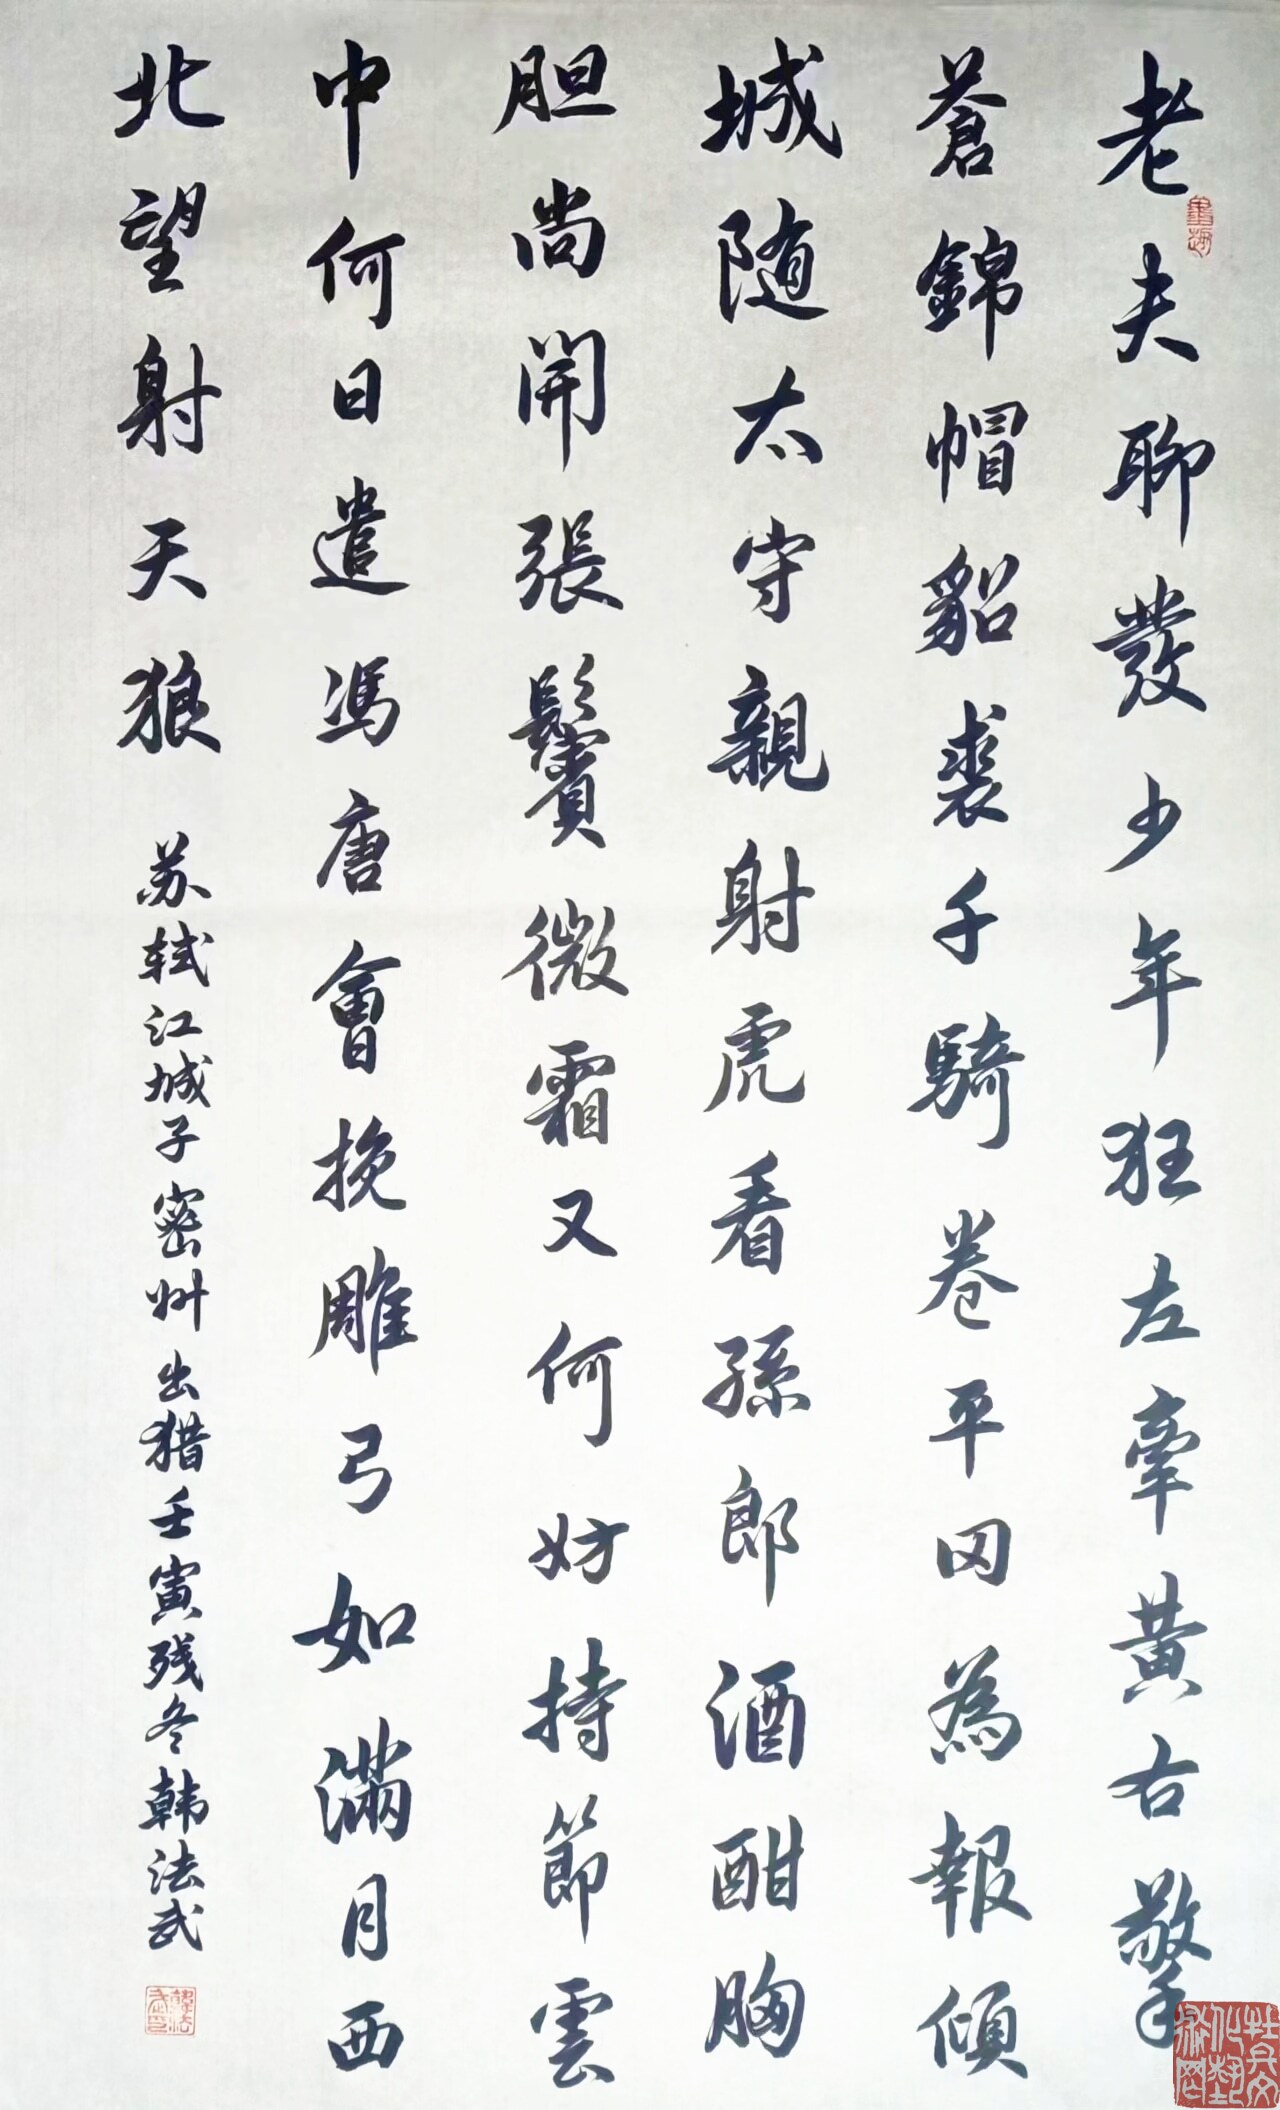 老夫聊發少年狂左牽黃右擎
蒼錦帽貂裘千騎卷平冈為報傾
城随太守親射虎看孫郎酒酣胸
胆尚開張鬢微霜又何妨持節雲
中何日遣馮唐會挽雕弓如滿月西
北望射天狼
苏轼江城子密州出猎壬寅残冬韩法武